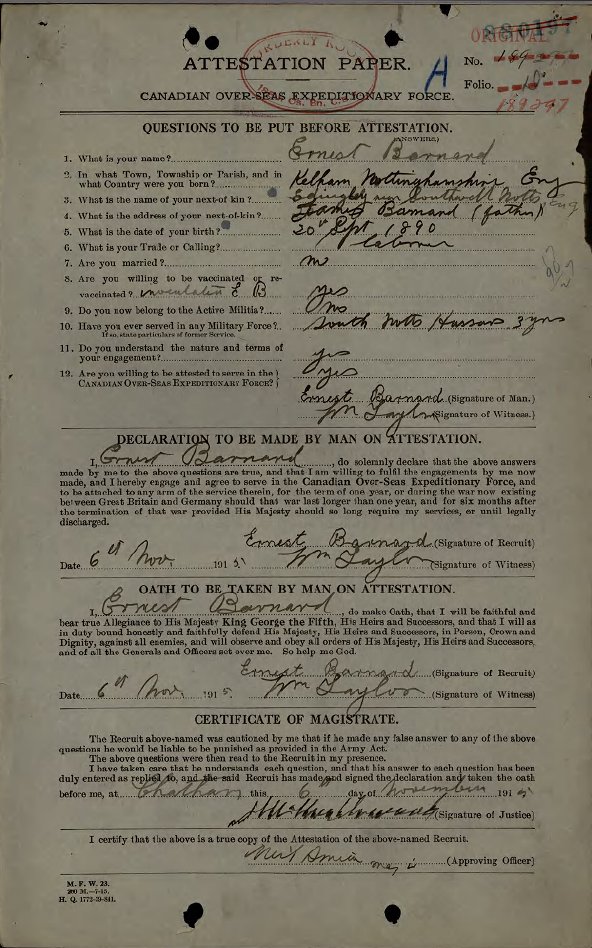 880197
ORIGINAL
ORDERLY ROOM
ATTESTATION PAPER.
No. 189
A
Folio.
189297
CANADIAN OVER-SEAS EXPEDITIONARY FORCE.
QUESTIONS TO BE PUT BEFORE ATTESTATION.
(ANSWERS.)
1. What is your name? Ernest Barnard
2. In what Town, Township or Parish, and in
what Country were you born? Kelham Nottinghamshire Eng
3. What is the name of your next-of kin? Southwell Notts Eng
4. What is the address of your next-of-kin? James Barnard (father)
5. What is the date of your birth? 20th Sept 1890
6. What is your Trade or Calling? Laborer
7. Are you married? no
8. Are you willing to be vaccinated or re-
vaccinated? inoculated E B yes
9. Do you now belong to the Active Militia? no
10. Have you ever served in any Military Force? South Notts Hussars 3 yrs
If so, state particulars of former Service.
11. Do you understand the nature and terms of
your engagement? yes
12. Are you willing to be attested to serve in the
CANADIAN OVER-SEAS EXPEDITIONARY FORCE? yes
Ernest Barnard (Signature of Man.)
Wm Taylor (Signature of Witness.)
DECLARATION TO BE MADE BY MAN ON ATTESTATION.
I, Ernest Barnard, do solemnly declare that the above answers
made by me to the above questions are true, and that I am willing to fulfil the engagements by me now
made, and I hereby engage and agree to serve in the Canadian Over-Seas Expeditionary Force, and
to be attached to any arm of the service therein, for the term of one year, or during the war now existing
between Great Britain and Germany should that war last longer than one year, and for six months after
the termination of that war provided His Majesty should so long require my services, or until legally
discharged.
Ernest Barnard (Signature of Recruit)
Date 6th Nov. 1915 Wm Taylor (Signature of Witness)
OATH TO BE TAKEN BY MAN ON ATTESTATION.
I, Ernest Barnard, do make Oath, that I will be faithful and
bear true Allegiance to His Majesty King George the Fifth, His Heirs and Successors, and that I will as
in duty bound honestly and faithfully defend His Majesty, His Heirs and Successors, in Person, Crown and
Dignity, against all enemies, and will observe and obey all orders of His Majesty, His Heirs and Successors,
and of all the Generals and Officers set over me. So help me God.
Ernest Barnard (Signature of Recruit)
Date 6th Nov. 1915. Wm Taylor (Signature of Witness)
CERTIFICATE OF MAGISTRATE.
The Recruit above-named was cautioned by me that if he made any false answer to any of the above
questions he would be liable to be punished as provided in the Army Act.
The above questions were then read to the Recruit in my presence.
I have taken care that he understands each question, and that his answer to each question has been
duly entered as replied to, and the said Recruit has made and signed the declaration and taken the oath
before me, at Chatham this 6th day of November 1915
(Signature of Justice)
I certify that the above is a true copy of the Attestation of the above-named Recruit.
(Approving Officer)
M. F. W. 23.
200 M.—7-15.
H. Q. 1772-39-841.